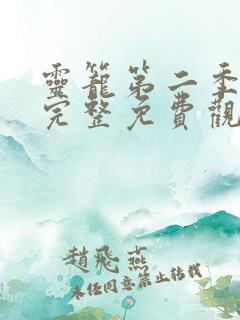 靈籠第二季
完整免費觀
趙飛燕
未經同意禁止轉載